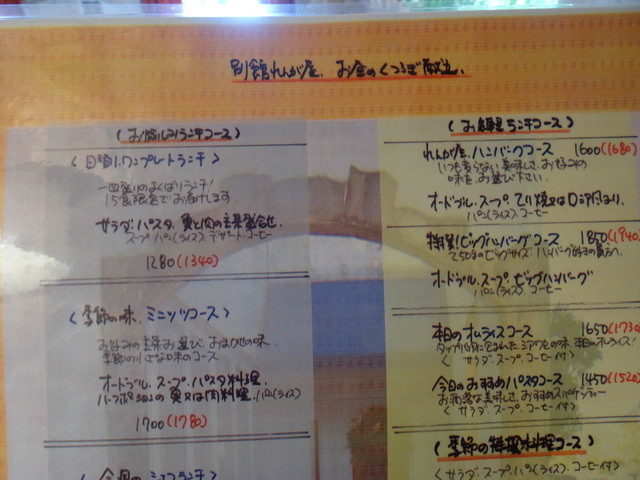 別館れんが屋. お昼のくつろぎ献立.
(お愉しみランチコース)
〈日替りワンプレートランチ〉
一皿盛りのよくばりランチ!
15食限定でお届けします
サラダ.パスタ.魚と肉の主菜盛合せ.
スープ.パン(ライス).デザート.コーヒー
1280(1340)
〈季節の味.ミニッツコース〉
お好みの主菜お選び.おまかせの味.
季節の小さな味のコース
オードブル.スープ.パスタ料理.
ハーフポーションの魚又は肉料理.パン(ライス)
1700(1780)
(お気軽ランチコース)
れんが屋.ハンバーグコース 1600(1680)
いつも変らない美味しさ.お好みの
味をお選び下さい.
オードブル.スープ.てり焼又はデミソース
パン(ライス).コーヒー
特製!ビッグハンバーグコース 1850(1940)
250gのビッグサイズ.ハンバーグ好きの貴方へ.
オードブル.スープ.ビッグハンバーグ
パン(ライス).コーヒー
本日のオムライスコース 1650(1730
本日のオムライス!
〈サラダ.スープ.コーヒー付〉
今日のおすすめパスタコース 1450(1520
お洒落な美味しさ.おすすめスパゲッティー
〈サラダ.スープ.コーヒー付〉
(季節の特撰料理コース)
〈サラダ.スープ.パン(ライス).コーヒー付〉